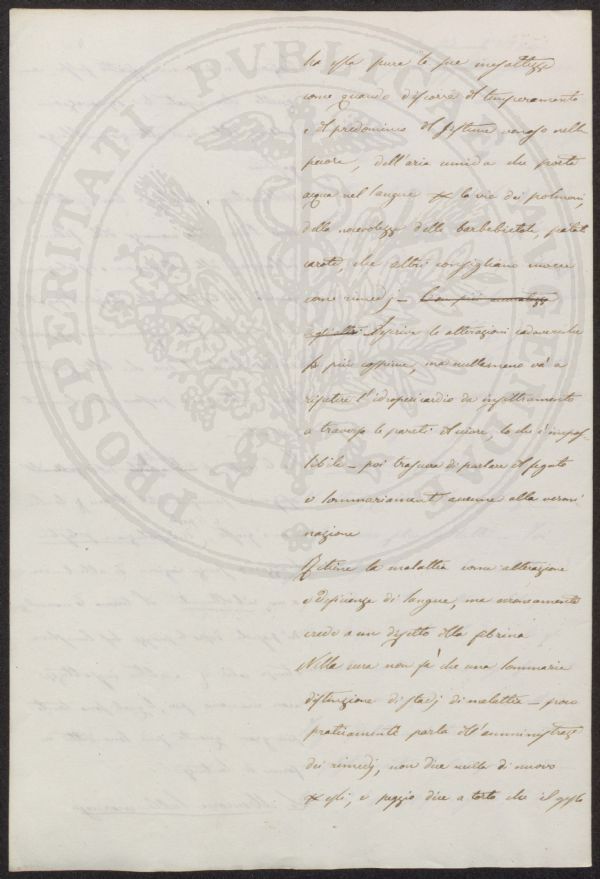 PROSPERITATI PUBLICAE AUGENDAE
ha essa pure le sue inesattezze
come, quando discorre del temperamento
e del predominio del sistema venoso nelle
pecore, dell'aria umida che porta
acqua nel sangue per la via dei polmoni,
della nocevolezza delle barbebietole, patate
carote, che altri consigliano invece
come rimedj –
Descrive le alterazioni cadaveriche
più, ma nullameno va a
ripetere l'idropericardio da infiltramento
a traverso le pareti del cuore, lo che è impos-
sibile – poi trascura di parlare del fegato
e sommariament accenna alla vermi
nazione
Ritiene la malattia come alterazione
e deficienza di sangue, ma erroneamente
crede a un difetto della fibrina
Nella cura non fa che una sommaria
distinzione di stadj di malattia – poco
praticamente parla dell'amministraze
dei rimedj, non dice nulla di nuovo
per essi, e peggio dice a torto che il gesso